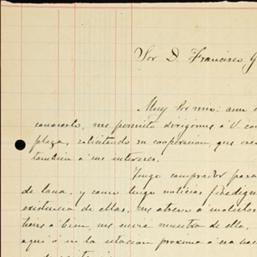 Sor D. Francisco G
Muy Sor mio: aun
conocerlo, me permito dirigirme á V. con
pleza, solicitando su cooperacion, que creo
tambien a sus intereses.
Tengo comprador para
de lana, y como tengo noticias
existencia de ellas, me atrevo a
tiene á bien, me envie muestra de ella,
aqui ó en la estacion proxima á